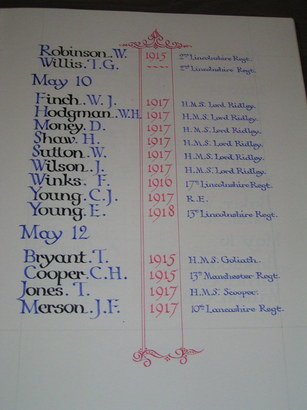 Robinson. W. 1915 2nd Lincolnshire Regt.
Willis. T.G. ---- 2nd Lincolnshire Regt.
May 10
Finch. W. J. 1917 H.M.S. Lord Ridley.
Hodgman. W.H. 1917 H.M.S. Lord Ridley.
Money. D. 1917 H.M.S. Lord Ridley.
Shaw. H. 1917 H.M.S. Lord Ridley.
Sutton. W. 1917 H.M.S. Lord Ridley.
Wilson. J. 1917 H.M.S. Lord Ridley.
Winks. F. 1916 17th Lincolnshire Regt.
Young. C.J. 1917 R.E.
Young. E. 1918 13th Lincolnshire Regt.
May 12
Bryant. T. 1915 H.M.S. Goliath.
Cooper. C.H. 1915 13th Manchester Regt.
Jones. T. 1917 H.M.S.
Merson. J.F. 1917 10th Lancashire Regt.